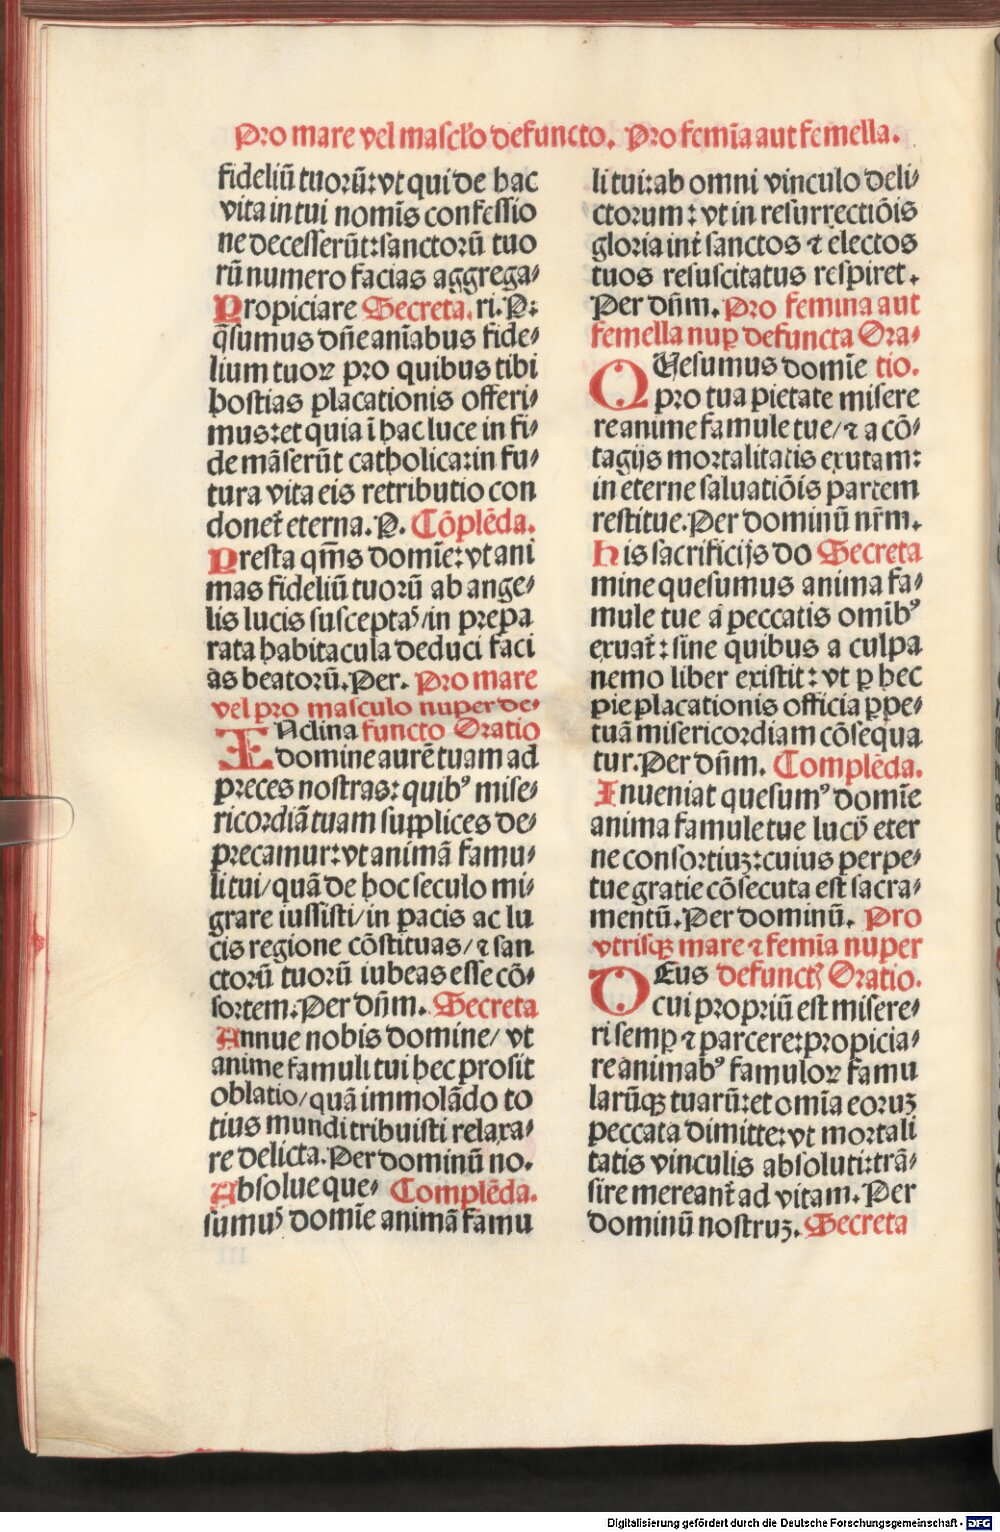 Pro mare vel mascl'o defuncto. Pro femīa aut femella.
fideliū tuoꝛū: vt qui de hac
vita in tui nomīs confessio
ne decesserūt: sanctoꝛū tuo
rū numero facias aggrega⸗
Propiciare Secreta. ri. P:
q̄sumus dn̄e aniābus fide⸗
lium tuoꝝ pꝛo quibus tibi
hostias placationis offeri⸗
mus: et quia ī hac luce in fi⸗
de māserūt catholica: in fu⸗
tura vita eis retributio con
donet̄ eterna. P. Cōplēda.
Presta qm̄s domīe: vt ani
mas fideliū tuoꝛū ab ange⸗
lis lucis susceptaꝭ/ in pꝛepa
rata habitacula deduci faci
as beatoꝛū. Per. Pro mare
vel pꝛo masculo nuper de⸗
INclina functo Oratio
domine aurē tuam ad
pꝛeces nostras: quibꝰ mise⸗
ricoꝛdiā tuam supplices de⸗
pꝛecamur: vt animā famu⸗
li tui/ quā de hoc seculo mi⸗
grare iussisti/ in pacis ac lu
cis regione cōstituas/ ⁊ san
ctoꝛū tuoꝛū iubeas esse cō⸗
soꝛtem. Per dn̄m. Secreta
Annue nobis domine/ vt
anime famuli tui hec pꝛosit
oblatio/ quā immolādo to
tius mundi tribuisti relaxa⸗
re delicta. Per dominū no.
Absolue que⸗ Complēda.
sumuꝰ domīe animā famu
li tui: ab omni vinculo deli⸗
ctoꝛum: vt in resurrectiōis
gloꝛia int̄ sanctos ⁊ electos
tuos resuscitatus respiret.
Per dn̄m. Pꝛo femina aut
femella nuꝑ defuncta Oꝛa⸗
QUesumus domīe tio.
pꝛo tua pietate misere
re anime famule tue/ ⁊ a cō⸗
tagijs moꝛtalitatis exutam:
in eterne saluatiōis partem
restitue. Per dominū nr̄m.
His sacrificijs do Secreta
mine quesumus anima fa⸗
mule tue a peccatis omībꝰ
exuat̄: sine quibus a culpa
nemo liber existit: vt ꝑ hec
pie placationis officia ꝑpe⸗
tuā misericoꝛdiam cōsequa
tur. Per dn̄m. Complēda.
Inueniat quesumꝰ domīe
anima famule tue lucꝭ eter
ne consoꝛtiuȝ: cuius perpe⸗
tue gratie cōsecuta est sacra⸗
mentū. Per dominū. Pꝛo
vtrisqȝ mare ⁊ femīa nuper
DEus defunctꝭ Oꝛatio.
cui pꝛopꝛiū est misere⸗
ri semꝑ ⁊ parcere: pꝛopicia⸗
re animabꝰ famuloꝝ famu
larūqȝ tuarū: et omīa eoꝛuȝ
peccata dimitte: vt moꝛtali
tatis vinculis absoluti: trā⸗
sire mereant̄ ad vitam. Per
dominū nostruȝ. Secreta
Digitalisierung gefördert durch die Deutsche Forschungsgemeinschaft - DFG